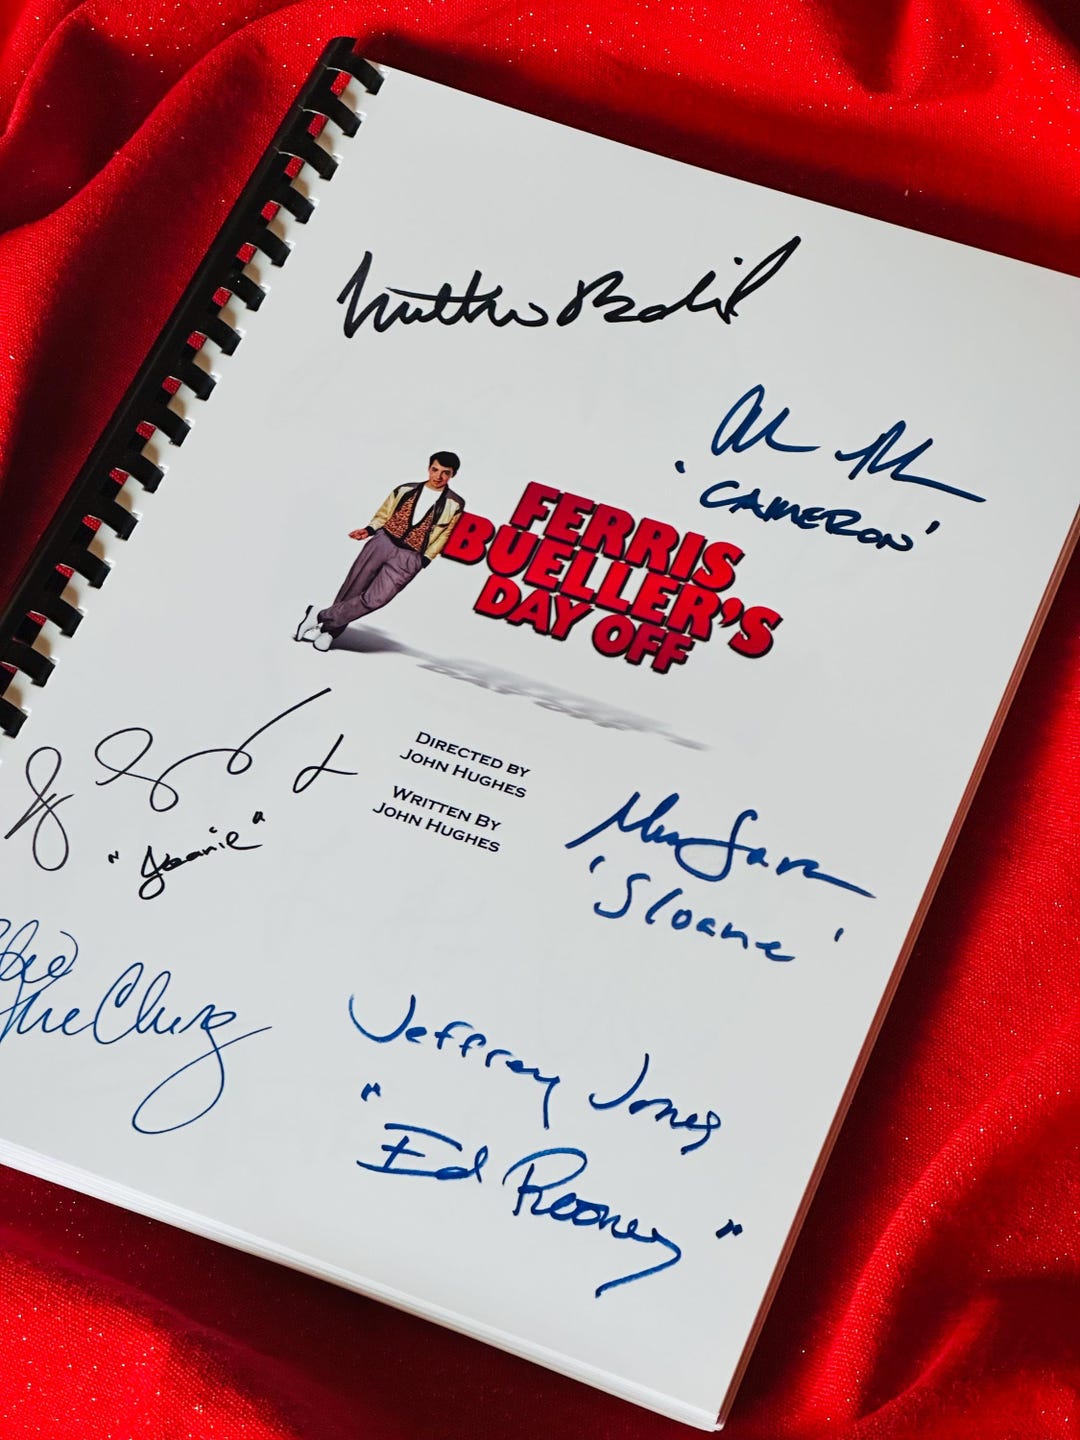 Matthew Broderick
'CAMERON'
FERRIS
BUELLER'S
DAY OFF
DIRECTED BY
JOHN HUGHES
WRITTEN BY
JOHN HUGHES
"Jeanie"
Mia Sara
'Sloane'
Jeffrey Jones
"Ed Rooney"